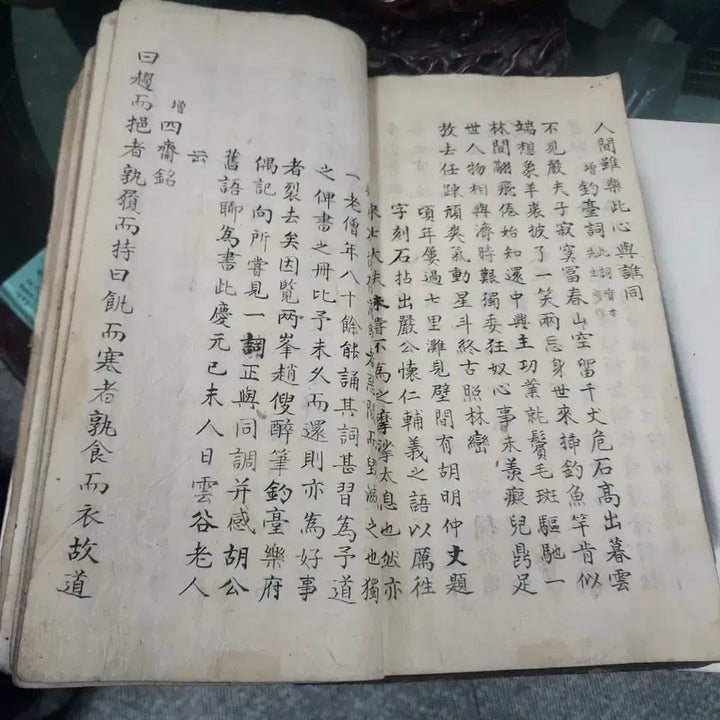 人間雖樂此心與誰同
增釣臺詞
不見嚴夫子寂寞富春山空留千丈危石高出暮雲
端想象羊裘披了一笑兩忘身世來揷釣魚竿肯似
林間翮飛倦始知還中興主功業就鬢毛斑驅馳一
世人物相與濟時艱獨委狂奴心事未羨癡兒鼎足
放去任踈頑爽氣動星斗終古照林巒
頃年屢過七里灘見壁間有胡明仲丈題
字刻石拈出嚴公懷仁輔義之語以厲徃
來士大夫未嘗不為之摩挲太息也然亦
者惡聞而毀滅之也獨
一老僧年八十餘能誦其詞甚習為予道
之俾書之冊比予未久而還則亦為好事
者裂去矣因覽两峯趙傻醉筆釣臺樂府
偶記向所嘗見一詞正與同調并感胡公
舊語聊為書此慶元己未人日雲谷老人
云
增四齋銘
曰趨而挹者孰而持曰飢而寒者孰食而衣故道